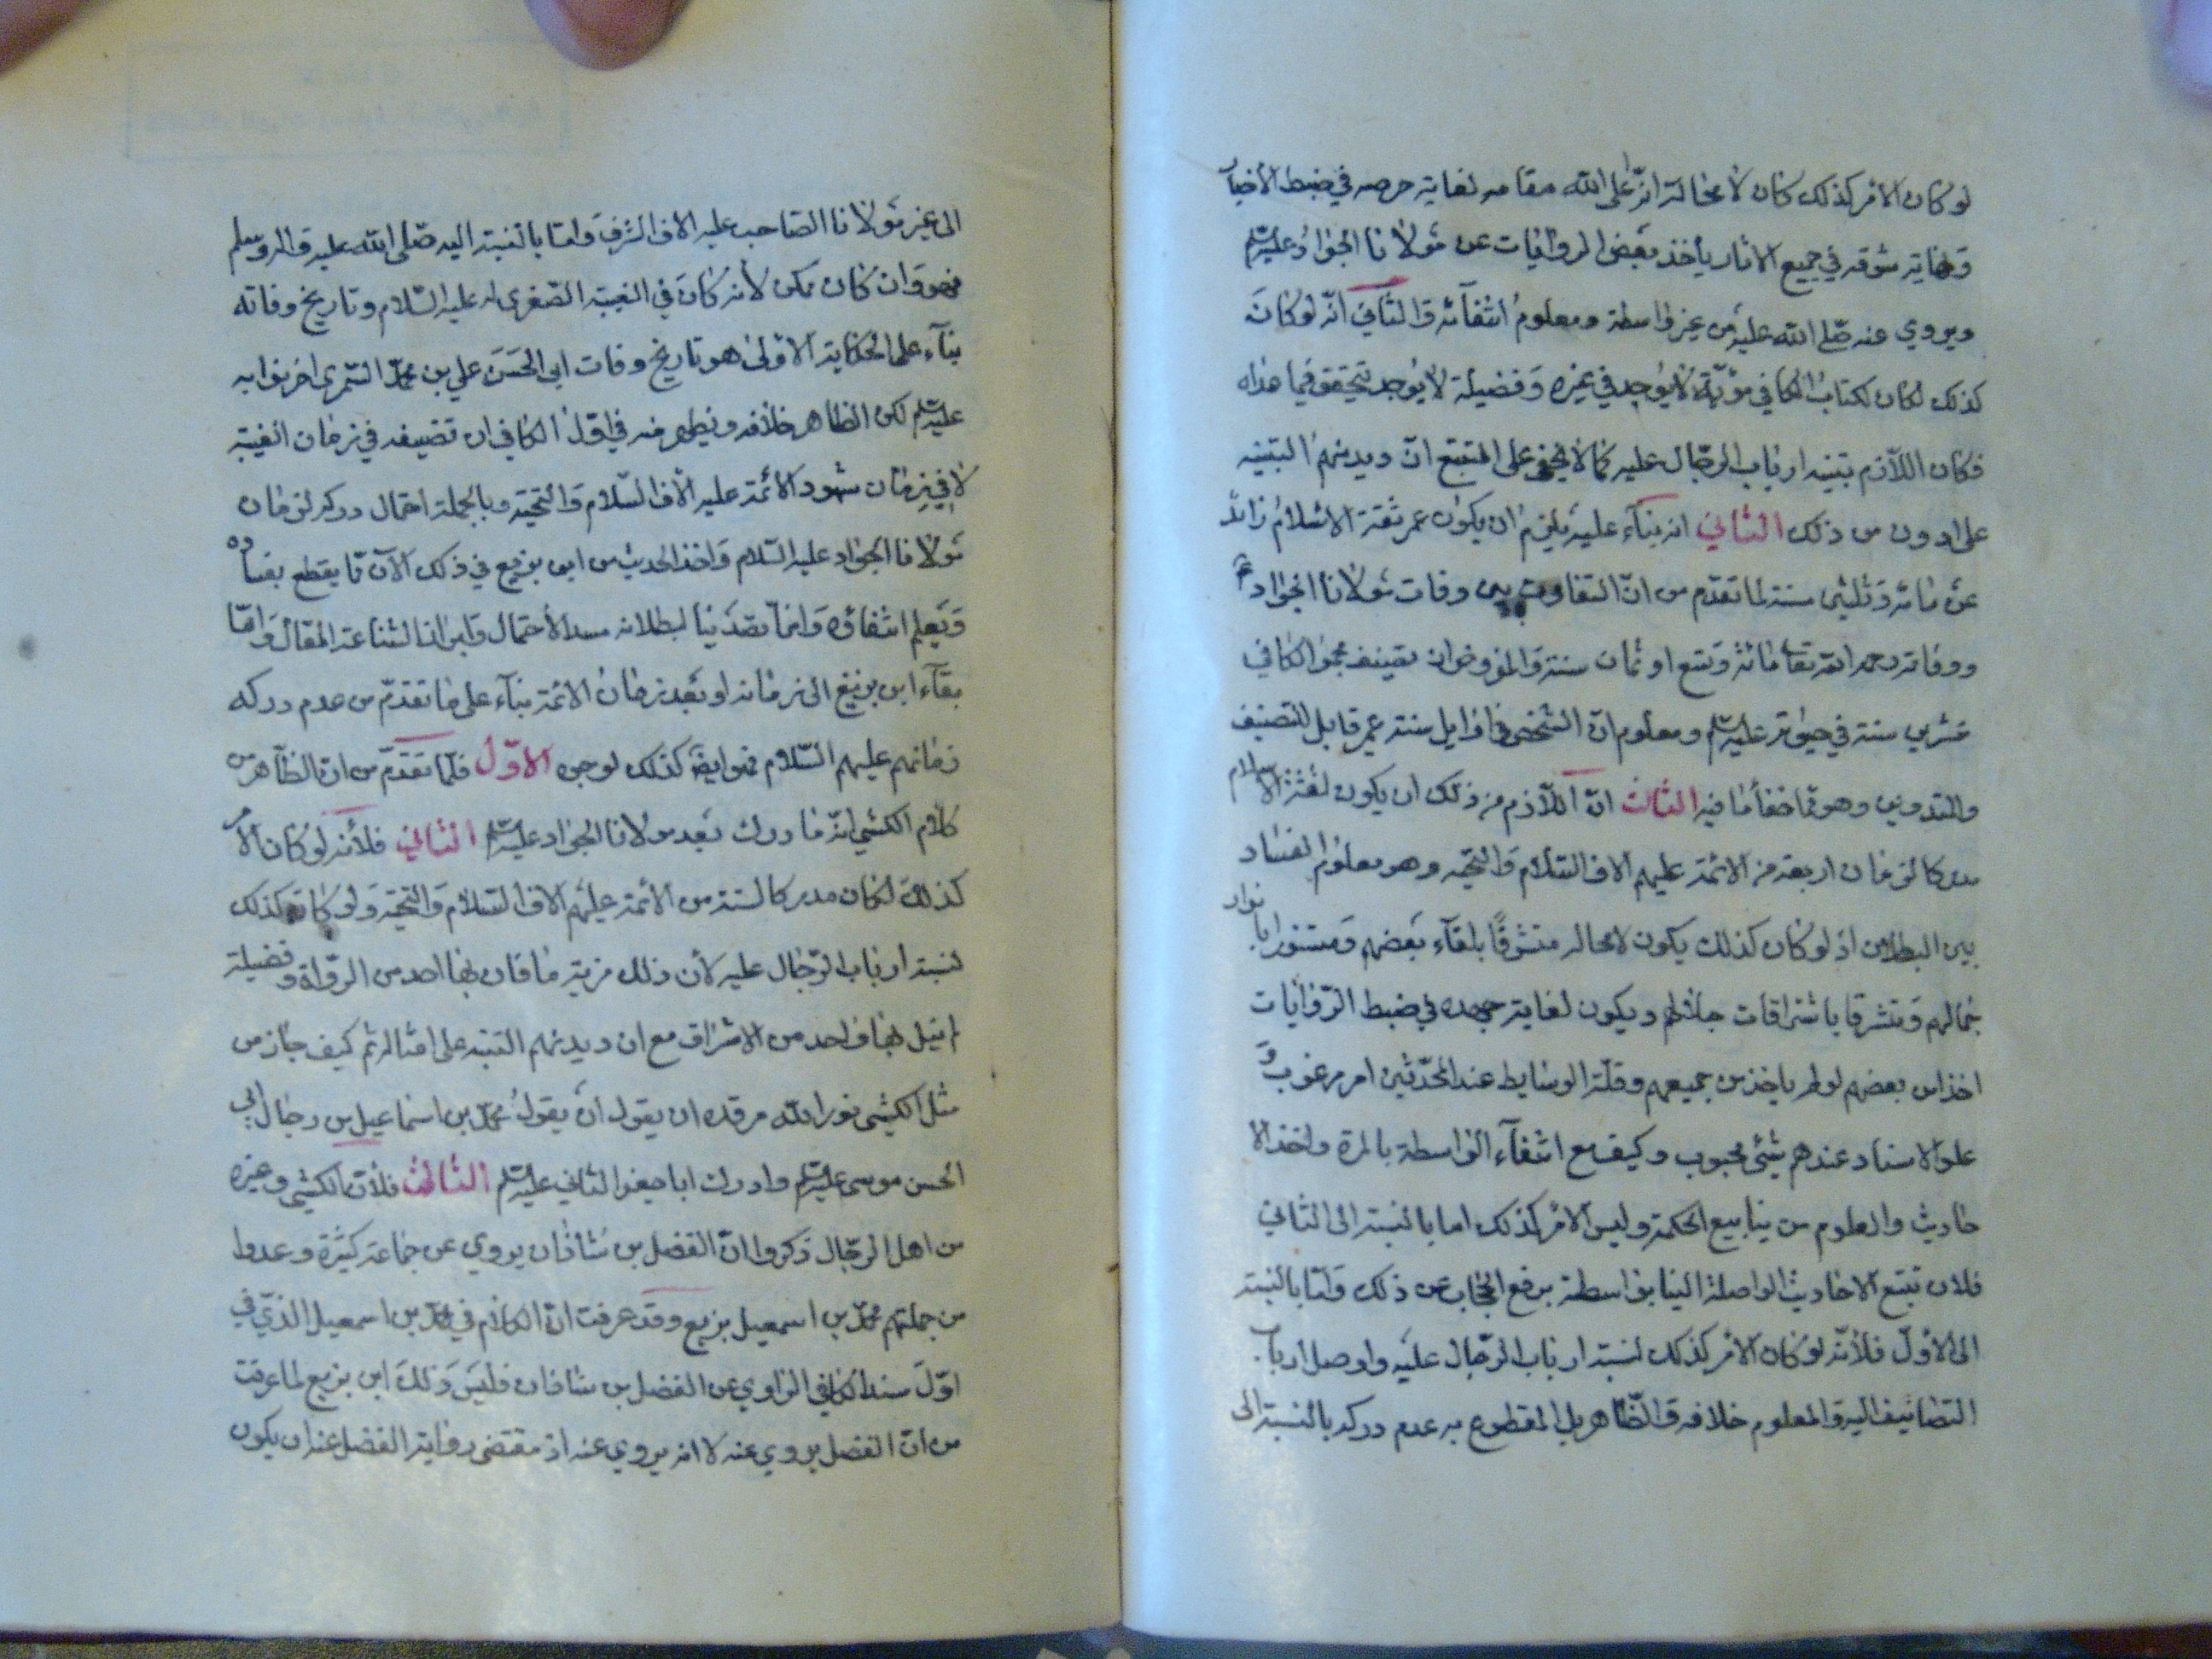 لو كان الامر كذلك كان لا محالة انّه اعلى الله مقامه لغاية حرصه في ضبط الأخبار
ونهاية شوقه في جميع الاثار يأخذ بعض الروايات عن مولانا الجواد عليه السلم
ويروي عنه صلى الله عليه من غير واسطة ومعلوم انتفائه والثاني انّه لو كان
كذلك لكان لكتاب الكافي مزيّة لا يوجد في غيره وفضيلة لا يوجد تتحقق فيما عداه
فكان اللازم تنبيه ارباب الرجال عليه كما لا يخفى على المتتبع انّ ديدنهم التنبيه
على ادون من ذلك الثاني انه بناء عليه يلزم ان يكون عمر ثقة الاسلام زائدا
عن مائة وثلثين سنة لما تقدّم من انّ التفاوت بين وفات مولانا الجواد ع
ووفاته رحمه الله تعالى مائة وتسع او ثمان سنة والمفروض ان تصنيف نحو الكافي
عشرين سنة في حيوته عليه السلم ومعلوم انّ الشخص في اوايل سنة عمره قابل للتصنيف
والتدوين وهو مما خفأ ما فيه الثالث انّ اللازم من ذلك ان يكون لثقة الاسلام
مدركا لزمان اربعة من الائمة عليهم الاف السلام والتحية وهو معلوم الفساد
بين البطلان اذ لو كان كذلك يكون لا محاله متشرفًا بلقاء بعضهم ومستنورا بانوار
جمالهم ومتشرقا باشراقات جلالهم ويكون لغاية جهده في ضبط الروايات
اخذا من بعضهم لو لم ياخذ من جميعهم وقلّة الوسايط عند المحدّثين امر مرغوب و
علو الاسناد عندهم شئ محبوب وكيف مع انتفاء الواسطة بالمرة واخذ الا
حاديث والعلوم من ينابيع الحكمة وليس الامر كذلك اما بالنسبة الى الثاني
فلان تتبع الاحاديث الواصلة الينا بواسطة يرفع الحجاب عن ذلك وامّا بالنسبة
الى الأوّل فلأنّه لو كان الامر كذلك لنبه ارباب الرجال عليه واوصل ارباب
التصانيف اليه والمعلوم خلافه والظّاهر بل المقطوع به عدم دركه بالنسبة الى
الى غير مولانا الصاحب عليه الاف الشرف وامّا بالنسبة اليه صلى الله عليه واله وسلم
فهو وان كان ممكن لأنه كان في الغيبة الصغرى له عليه السلام وتاريخ وفاته
بناء على الحكاية الاولى هو تاريخ وفات ابي الحسن علي بن محمد السّمري اخر نوابه
عليه السلم لكن الظاهر خلافه ويظهر منه في اوّل الكافي ان تصنيفه في زمان الغيبة
لا في زمان شهود الائمة عليه الاف السّلام والتحية وبالجملة احتمال دركه لزمان
مولانا الجواد عليه السّلام واخذ الحديث من ابن بزيع في ذلك الآن مما يقطع بفساده
ويعلم انتفاؤه وانما تصدّينا لبطلانه سدا لاحتمال وابرازا لشناعة المقال وامّا
بقاء ابن بزيع الى زمانه او بعد زمان الائمة بناء على ما تقدّم من عدم دركه
زمانهم عليهم السّلام فهو ايضا كذلك لوجوه الاوّل فلما تقدّم من ان الظّاهر من
كلام الكشي انّه ما درك بعد مولانا الجواد عليه السلم الثاني فلأنه لو كان الامر
كذلك لكان مدركا لستة من الأئمة عليهم الاف السّلام والتحية ولو كان كذلك
لنبه ارباب الرّجال عليه لأن ذلك مزية ما فان بها احد من الروّاة وفضيلة
لم ينل بها واحد من الاشراف مع ان ديدنهم التنبه على امثاله ثم كيف جاز من
مثل الكشي نور الله مرقده ان يقول ان يقول محمّد بن اسماعيل من رجال ابي
الحسن موسى عليه السلم وادرك ابا جعفر الثاني عليه السلم الثالث فلأن الكشي وغيره
من اهل الرجال ذكروا انّ الفضل بن شاذان يروي عن جماعة كثيرة وعدوا
من جملتهم محمّد بن اسمعيل بزيع وقد عرفت انّ الكلام في محمّد بن اسمعيل الذّي في
اوّل سند الكافي الراوي عن الفضل بن شاذان فليس ذلك ابن بزيع لما عرفت
من انّ الفضل يروي عنه لا انه يروي عنه اذ مقتضى رواية الفضل عنه ان يكون